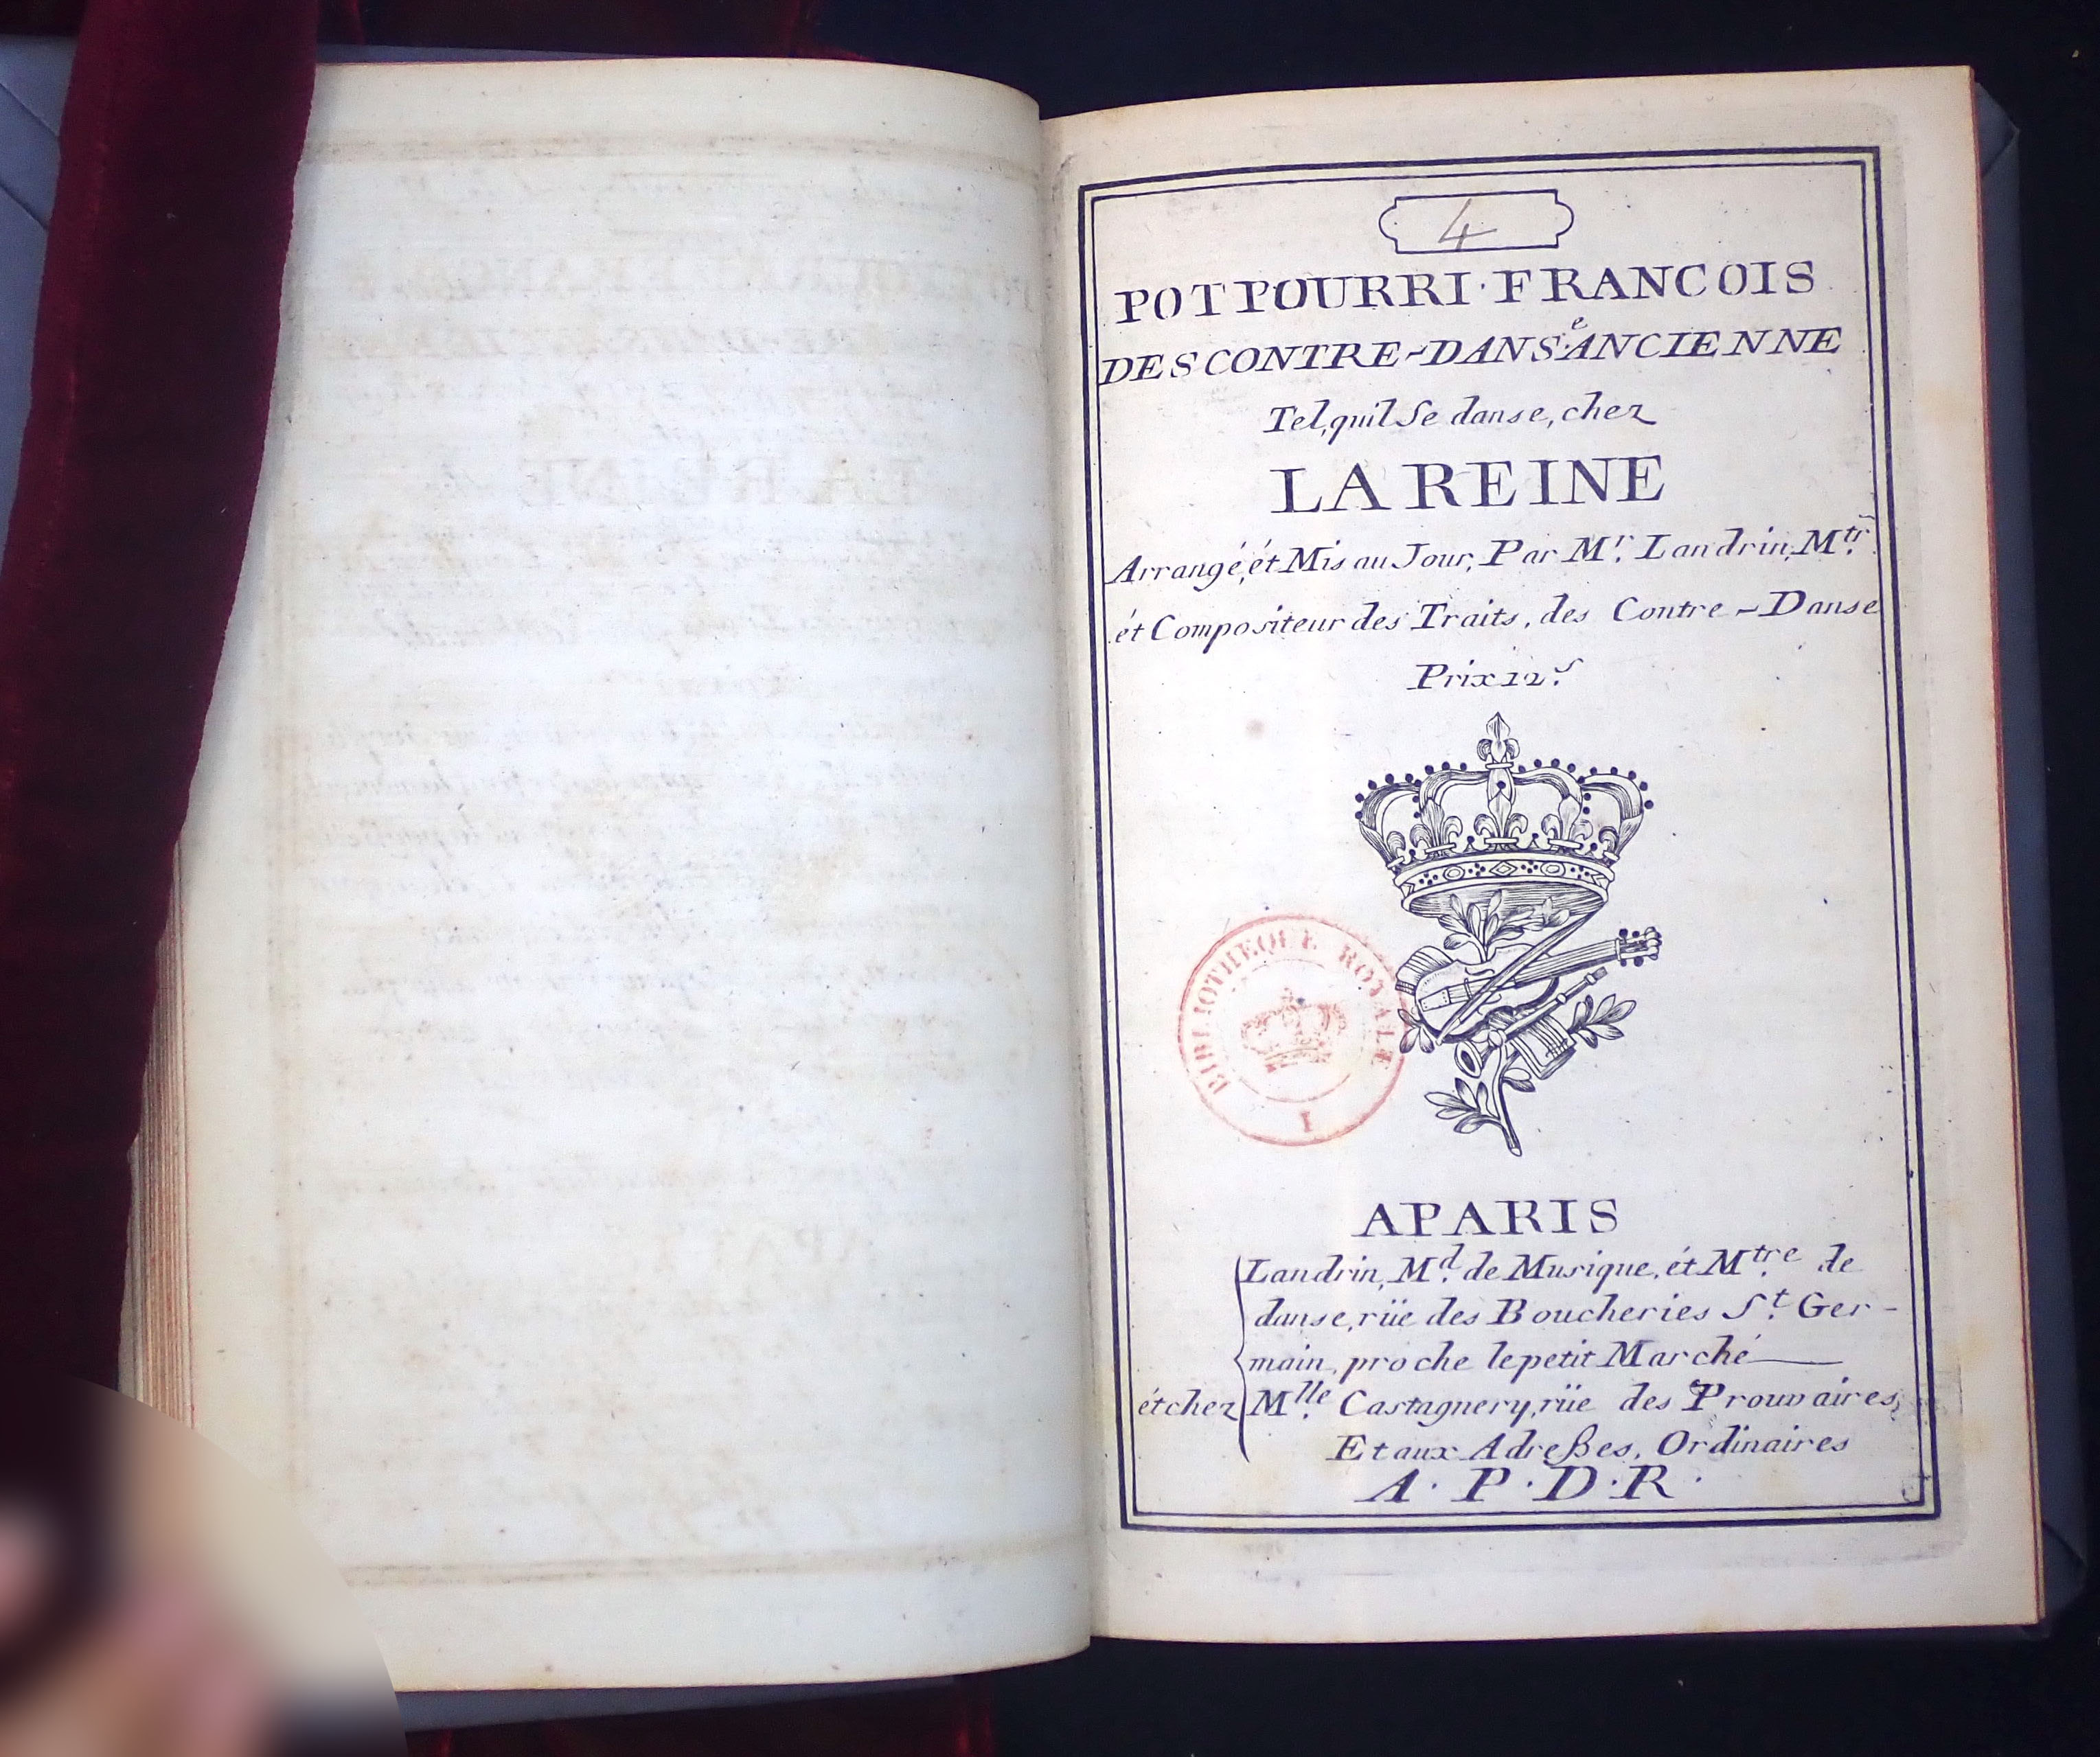 4
POTPOURRI·FRANCOIS
DES CONTRE-DANSᵉ ANCIENNE
Tel, quil Se danse, chez
LA REINE
Arrangé, ét Mis au Jour, Par Mʳ. Landrin, Mᵗʳ.
ét Compositeur des Traits, des Contre-Danse
Prix 12ˢ.
BIBLIOTHEQUE ROYALE
I
A PARIS
Landrin, Mᵈ. de Musique, ét Mᵗʳᵉ. de
danse, rüe des Boucheries Sᵗ. Ger-
main, proche le petit Marché
ét chez Mˡˡᵉ. Castagnery, rüe des Prouvaires,
Et aux Adreßes, Ordinaires
A·P·D·R·